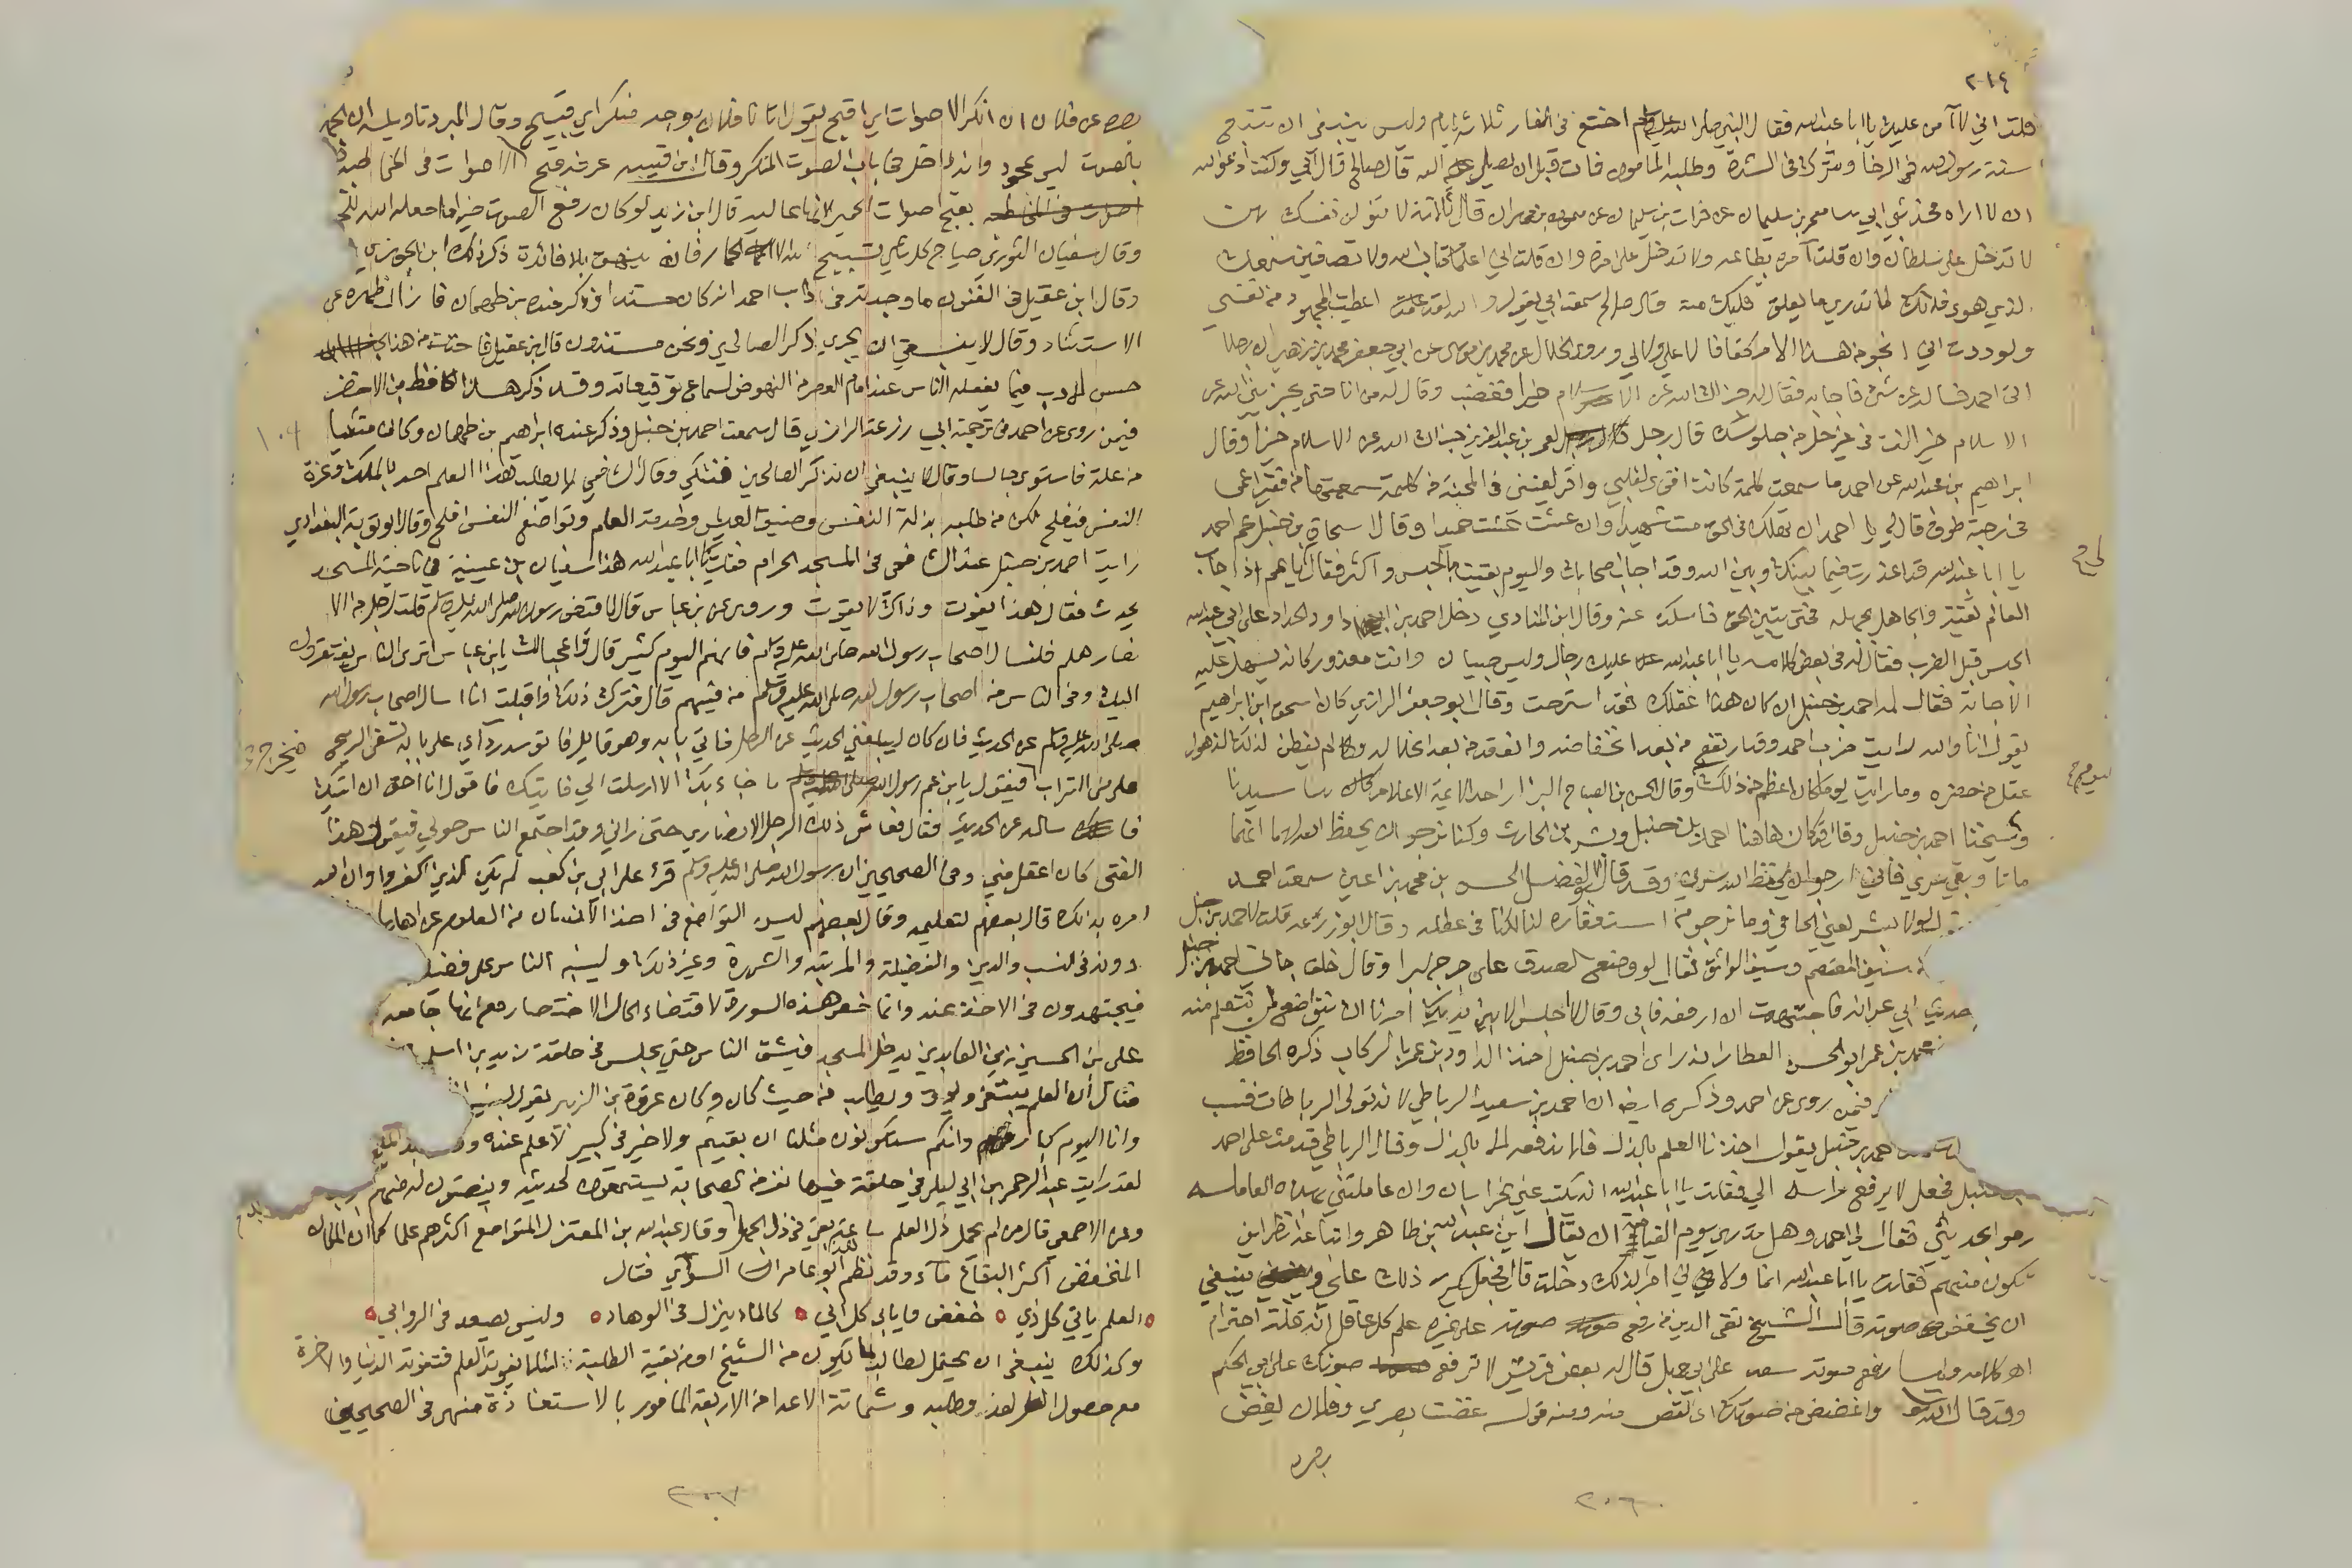 ٢١٤
قلت اني لا آمن عليك يا ابا عبد الله فقال النبي صلى الله عليه وسلم اختفى في الغار ثلاثة ايام وليس ينبغي ان تتبع
سنة رسول الله في الرخا وتترك في الشدة وطلبه المامون فمات قبل ان يصل اليه قال صالح قال أبي وكنت ادعو الله
ان لا اراه حدثني ابي معمر بن سليمان عن فرات بن سليمان عن ميمون بن مهران قال ثلاثة لا تبلون نفسك بهن
لا تدخل على سلطان وان قلت آمره بطاعة ولا تدخل على امرأة وان قلت اني اعلمها كتاب الله ولا تصغين سمعك
لذي هوى فانك لا تدري ما يعلق قلبك منه قال صالح سمعت ابي يقول والله لقد اعطيت المجهود من نفسي
ولوددت اني انجو من هذا الامر كفافا لا علي ولا لي وروى الخلال عن محمد بن موسى عن ابي جعفر محمد بن زهير ان رجلا
اتى احمد فسأله عن شئ فاجابه فقال له جزاك الله عن الاسلام خيرا فغضب وقال له من انا حتى يجزيني الله عن
الاسلام خيرا قال رجل لعمر بن عبد العزيز جزاك الله عن الاسلام خيرا وقال
ابراهيم بن عبد الله عن احمد ما سمعت كلمة كانت اقوى لقلبي واقر لعيني في المحنة من كلمة سمعتها من فقير اعمى
في رحبة طوق قال لي يا احمد ان تهلك في الحق مت شهيدا وان عشت عشت حميدا وقال اسحاق بن حنبل عم احمد
يا ابا عبد الله قد اعذرت فيما بينك وبين الله وقد اجاب اصحابك واليوم بقيت بالحبس والشر فقال يا عم اذا اجاب
العالم تقية والجاهل بجهله فمتى يتبين الحق فامسك عنه وقال ابن المنادي دخل احمد بن داود الحداد على ابي عبد الله
الحبس قبل الضرب فقال له في بعض كلامه يا ابا عبد الله عليك رجال وليس صبيان وانت معذور كانه يسهل عليه
الاجابة فقال له احمد بن حنبل ان كان هذا عقلك فقد استرحت وقال ابو جعفر الرازي كان اسحق ابن ابراهيم
يقول انا والله رأيت ضرب احمد وقد ارتفع من بعد انخفاضه وانعقد من بعد انحلاله ولم يفطن لذلك لذهول
عقل من حضره وما رأيت يوما كان اعظم من ذلك وقال الحسن بن الصباح البزار احد الائمة الاعلام مات سيدنا
وشيخنا احمد بن حنبل وقال كان هاهنا احمد بن حنبل وبشر بن الحارث وكنا نرجو ان يحفظ الله بهما انهما
ماتا وبقي سري فاني ارجو ان يحفظ الله بسري وقد قال ابو الفضل الحسن بن محمد بن اعين سمعت احمد
لولا بشر يعني الحافي وما نرجو من استغفاره لنا لكنا في عطلة وقال ابو زرعة قلت لاحمد بن حنبل
سيف المعتصم وسيف الواثق فقال لو وضع الصدق على جرح لبرا وقال خلف جاني احمد بن حنبل
حديث ابي عوانة فاجتهدت ان ارفعه فابى وقال لا اجلس الا بين يديك امرنا ان نتواضع لمن نتعلم منه
محمد بن عمر ابو الحسن العطار انه رأى احمد بن حنبل اخذ لداود بن عمر بالركاب ذكره الحافظ
فيمن روى عن احمد وذكر ايضا ان احمد بن سعيد الرباطي لانه تولى الرباطات فنسب
احمد بن حنبل يقول اخذنا العلم بالذل فلا ندفعه الا بالذل وقال الرباطي قدمت على احمد
بن حنبل فجعل لا يرفع رأسه الي فقلت يا ابا عبد الله انه يكتب عني بخراسان وان عاملتني بهذه المعاملة
رموا بحديثي فقال لي احمد وهل بد يوم القيامة ان يقال اين عبد الله بن طاهر واتباعه انظر اين
تكون منهم فقلت يا ابا عبد الله انما ولاني امر لذلك دخلت قال فجعل يكرر ذلك علي وينبغي
ان يخفض صوته قال الشيخ تقي الدين من رفع صوته على غيره علم كل عاقل انه قلة احترام
اه كلامه ولما رفع صوته سعد على ابي جهل قال له بعض قريش لا ترفع صوتك على ابي الحكم
وقد قال الله تعالى واغضض من صوتك اي انقص منه ومنه قوله غضضت بصري وفلان يغض
بصره
٢٠٦
بصره عن فلان ان انكر الاصوات اي اقبح يقول اتانا فلان بوجه منكر اي قبيح وقال المبرد تاويله ان الجهر
بالصوت ليس بمحمود وانه داخل في باب الصوت المنكر وقال ابن قتيبة عرفه قبح الاصوات في المخاطبة
بقبح اصوات الحمير لانها عالية قال ابن زيد لو كان رفع الصوت خيرا ما جعله الله للحمير
وقال سفيان الثوري صياح كل شئ تسبيح لله الا الحمار فانه ينهق بلا فائدة ذكر ذلك ابن الجوزي
وقال ابن عقيل في الفنون ما وجدته في آداب احمد انه كان مستندا وذكر عنده بن طهمان فازال ظهره عن
الاستناد وقال لا ينبغي ان يجري ذكر الصالحين ونحن مستندون قال ابن عقيل فاخذت من هذا
حسن الادب فيما يفعله الناس عند امام العصر من النهوض لسماع توقيعاته وقد ذكر هذا الحافظ بن الاخضر
فيمن روى عن احمد في ترجمة ابي زرعة الرازي قال سمعت احمد بن حنبل وذكر عنده ابراهيم بن طهمان وكان متكيا
من علة فاستوى جالسا وقال لا ينبغي ان نذكر الصالحين فنتكي وقال الشافعي لا يطلب هذا العلم احد بالملك وعزة
النفس فيفلح لكن من طلبه بذلة النفس وضيق العيش وخدمة العلم وتواضع النفس افلح وقال ابو توبة البغدادي
رايت احمد بن حنبل عند الشافعي في المسجد الحرام فقلت يا ابا عبد الله هذا سفيان بن عيينة في ناحية المسجد
يحدث فقال هذا يفوت وذاك لا يفوت وروي عن بن عباس قال لما قبض رسول الله صلى الله عليه وسلم قلت لرجل من الا
نصار هلم فلنسال اصحاب رسول الله صلى الله عليه وسلم فانهم اليوم كثير قال واعجبا لك يا ابن عباس اترى الناس يفتقرون
اليك وفي الناس من اصحاب رسول الله صلى الله عليه وسلم من فيهم قال فترك ذلك واقبلت انا اسال اصحاب رسول الله
صلى الله عليه وسلم عن الحديث فان كان ليبلغني الحديث عن الرجل فاتي بابه وهو قايل فاتوسد ردآي على بابه تسفي الريح
علي من التراب فيخرج فيقول يا ابن عم رسول الله ما جاء بك الا ارسلت الي فاتيك فاقول انا احق ان اتيك
فاساله عن الحديث فقال فعاش ذلك الرجل الانصاري حتى راني وقد اجتمع الناس حولي فيقول هذا
الفتى كان اعقل مني وفي الصحيحين ان رسول الله صلى الله عليه وسلم قرأ على ابي بن كعب لم يكن الذين كفروا وان الله
امره بذلك قال بعضهم لتعليمه وقال بعضهم ليسن التواضع في اخذ الانسان من العلوم عن اهلها
دونه في النسب والدين والفضيلة والمرتبة والشهرة وغير ذلك ولينبه الناس على فضيلة
فيجتهدون في الاخذ عنه وانما خص هذه السورة لاقتضاء الحال الاختصار مع انها جامعة
علي بن الحسين زين العابدين يدخل المسجد فيشق الناس حتى يجلس في حلقة زيد بن اسلم
فقال ان العلم يبتغى ويؤتى ويطلب من حيث كان وكان عروة بن الزبير يقول لبنيه
وانا اليوم كبار وانكم ستكونون مثلنا ان بقيتم ولا خير في كبير لا علم عنده
لقد رايت عبد الرحمن بن ابي ليلى في حلقة فيها نفر من الصحابة يستمعون لحديثه وينصتون له منهم
وعن الاصمعي قال من لم يحمل ذل العلم ساعة بقي في ذل الجهل ابدا وقال عبد الله بن المعتز المتواضع اكثرهم علما كما ان المكان
المنخفض اكثر البقاع مآء وقد نظم ابو عامر فقال
العلم ياتي كل ذي خفض ويابى كل ابي كالماء ينزل في الوهاد وليس يصعد في الروابي
وكذلك ينبغي ان يحتمل الطالب ما يكون من الشيخ او من بقية الطلبة لئلا يفوته العلم فتفوته الدنيا والاخرة
مع حصول العدو وطلبه وشماتة الاعدا من الاربعة المامور بالاستعاذة منهن في الصحيحين